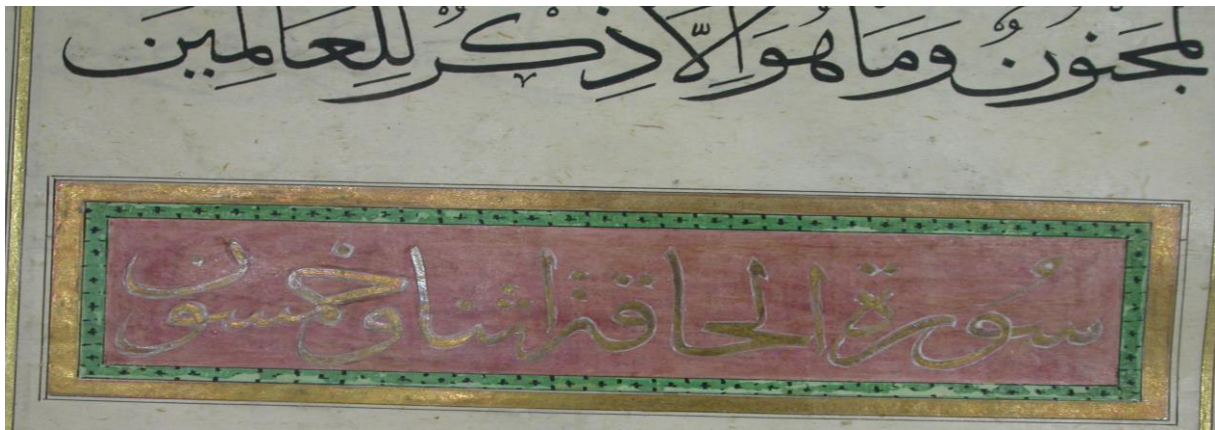 لمجنون وما هو الا ذكر للعالمين
سورة الحاقة اثنا وخمسون